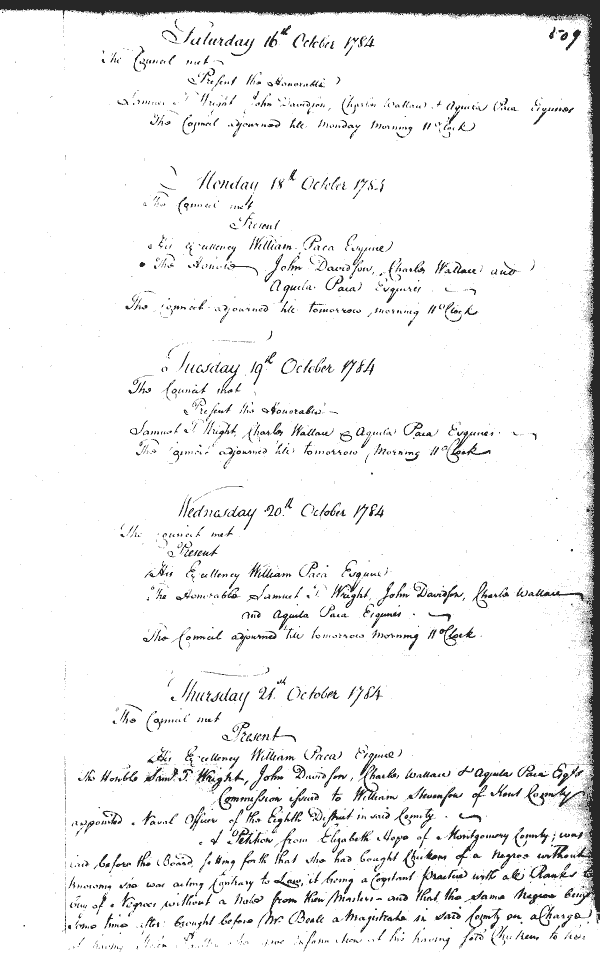 509
Saturday 16th October 1784
The Council met
Present the Honorable
Samuel T Wright John Davidson, Charles Wallace & Aquila Paca Esquires
The Council adjourned till Monday Morning 11 oClock
Monday 18th October 1784
The Council met
Present
His Excellency William Paca Esquire
The Honble John Davidson, Charles Wallace and
Aquila Paca Esquires
The Council adjourned till tomorrow morning 11 oClock
Tuesday 19th October 1784
The Council met
Present the Honorable
Samuel T Wright, Charles Wallace & Aquila Paca Esquires
The Council adjourned till tomorrow Morning 11 oClock
Wednesday 20th October 1784
The Council met
Present
His Excellency William Paca Esquire
The Honorable Samuel T. Wright, John Davidson, Charles Wallace
and Aquila Paca Esquires
The Council adjourned till tomorrow morning 11 oClock
Thursday 21st October 1784
The Council met
Present
His Excellency William Paca Esquire
The Honble Saml. T. Wright, John Davidson, Charles Wallace & Aquila Paca Esqrs
Commission issued to William Stevenson of Kent County
appointed Naval Officer of the Eighth District in said County.
A Petition from Elizabeth Hope of Montgomery County; was
laid before the Board setting forth that she had bought Chickens of a Negroe without
knowing she was acting Contrary to Law, it being a Constant practice with all Ranks to
buy of Negroes without a Note from their Masters and that the same Negroe being
some time after brought before Mr Beall a Magistrate in said County on a Charge
of having Stolen information of his having sold Chickens to her